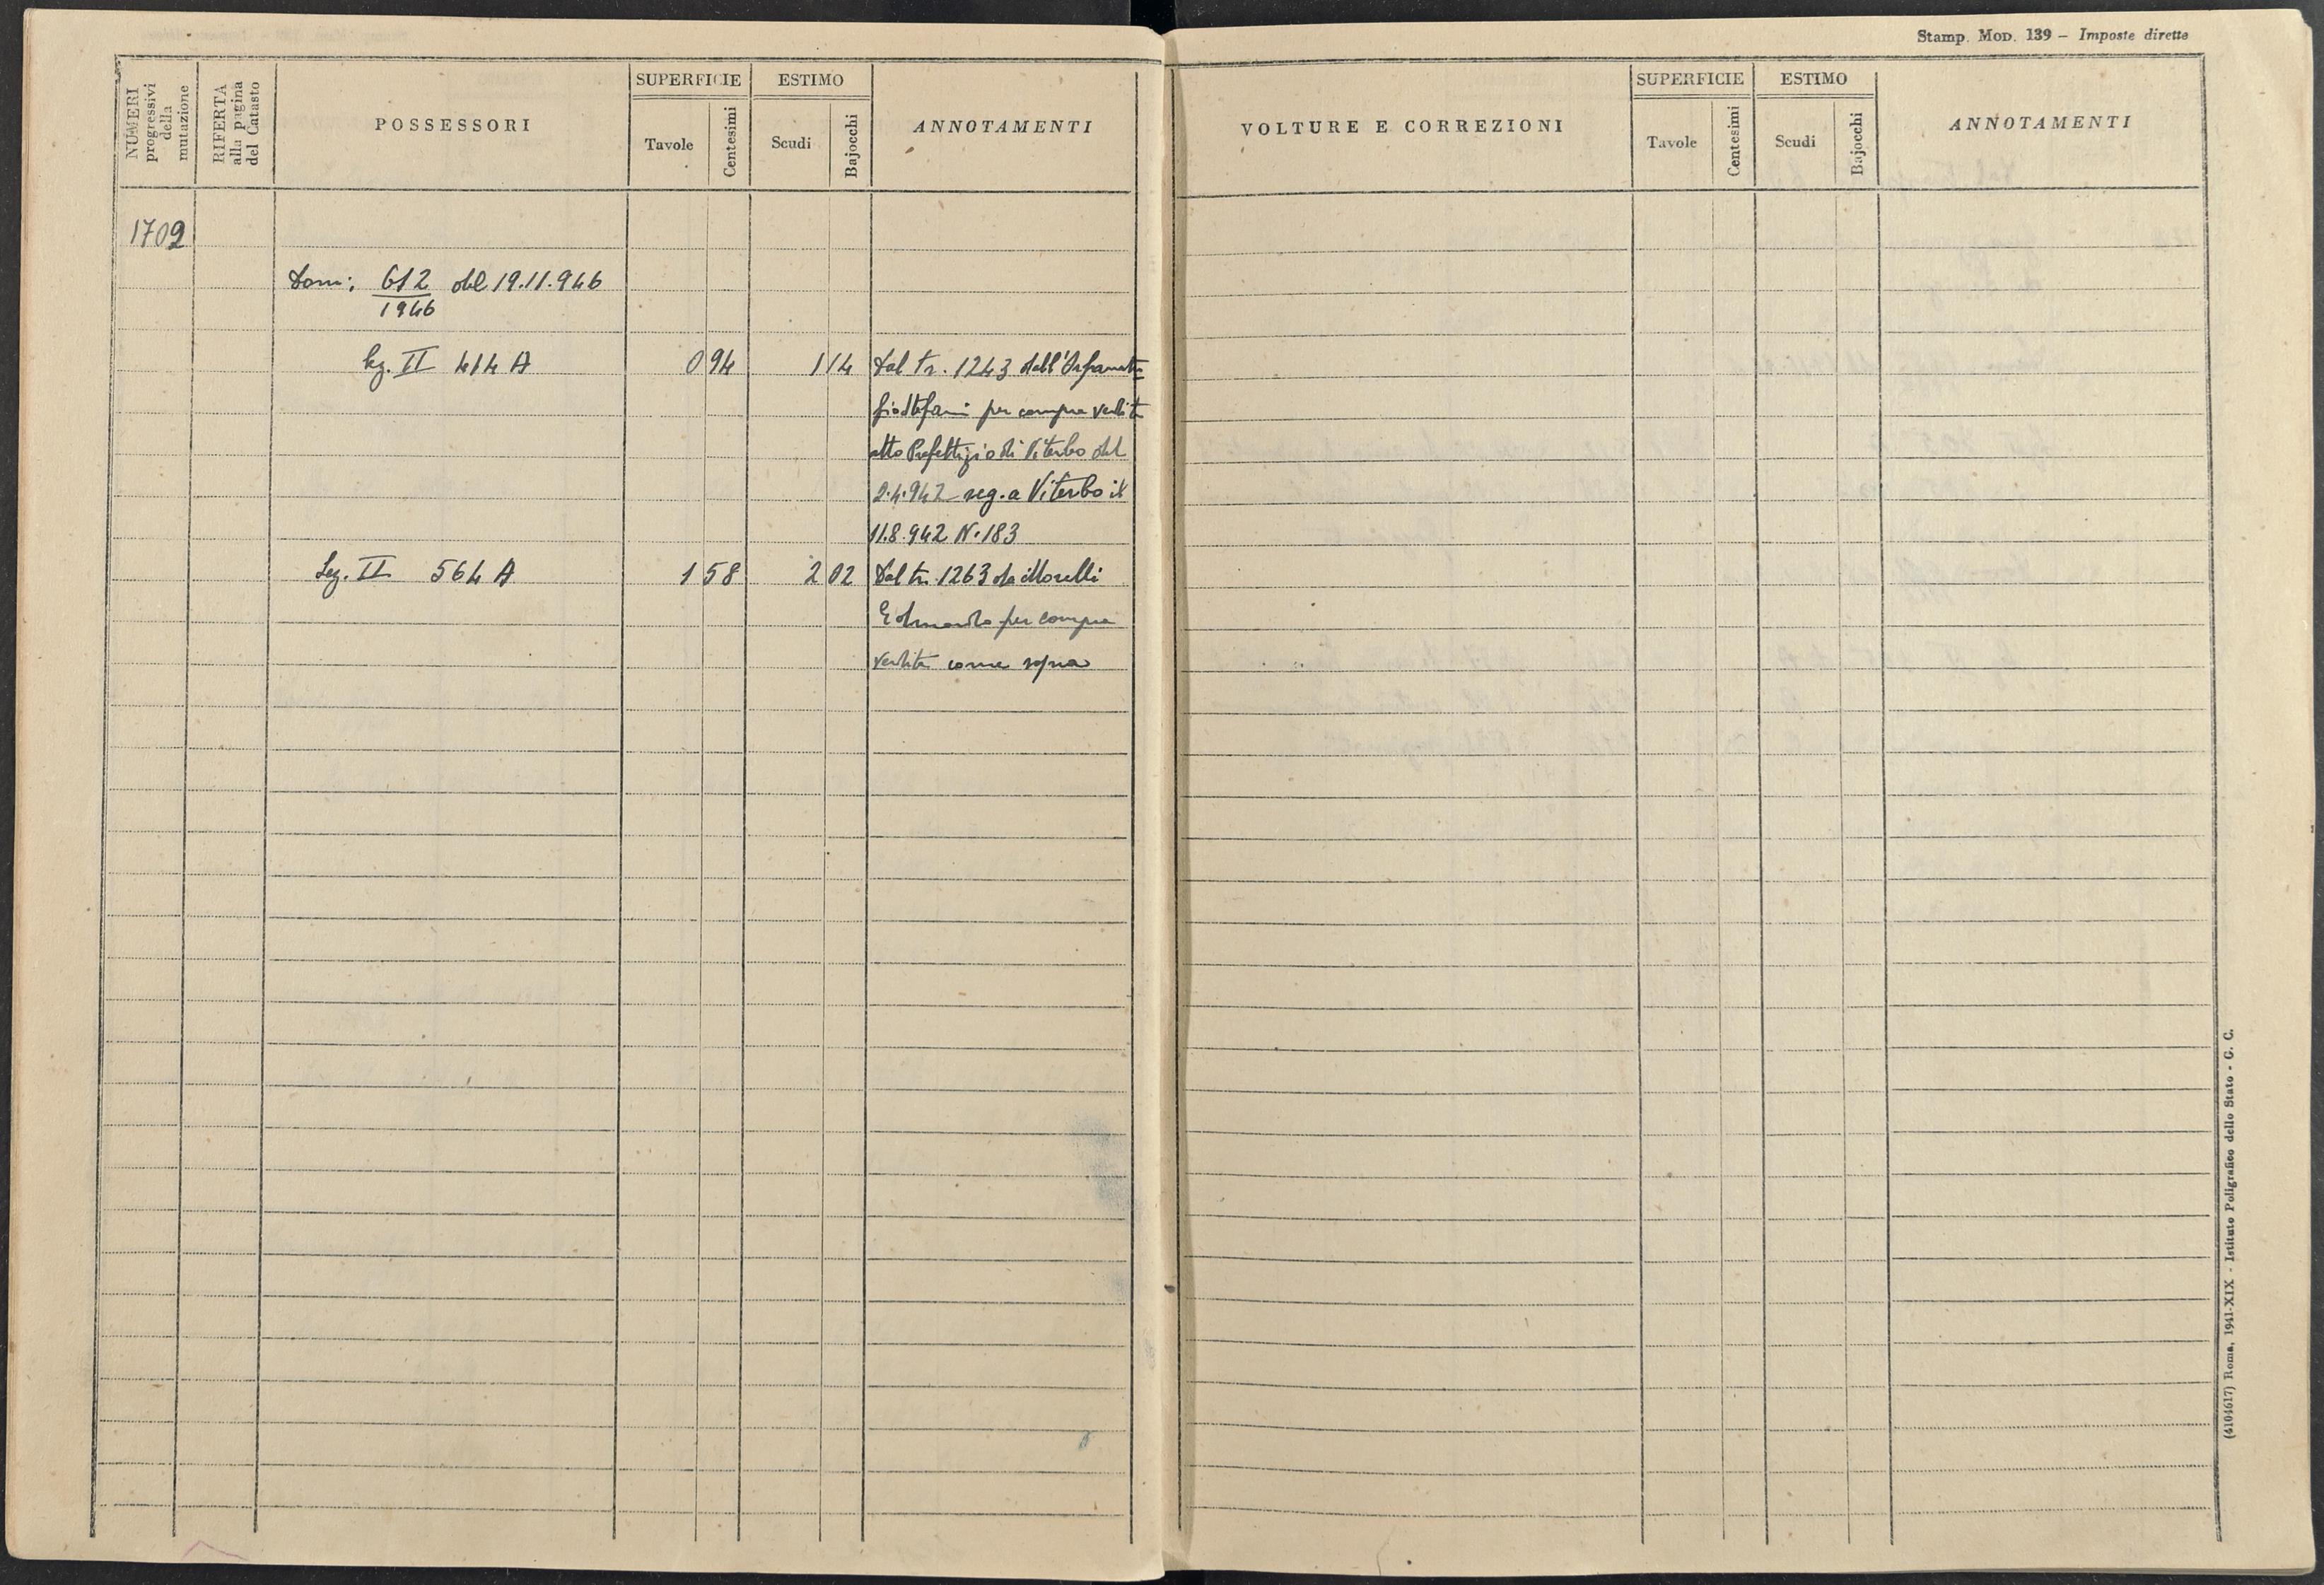 Stamp. Mod. 139 – Imposte dirette
NUMERI
progressivi
della
mutazione
RIFERTA
alla pagina
del Catasto
POSSESSORI
SUPERFICIE
Tavole
Centesimi
ESTIMO
Scudi
Bajocchi
ANNOTAMENTI
VOLTURE E CORREZIONI
SUPERFICIE
Tavole
Centesimi
ESTIMO
Scudi
Bajocchi
ANNOTAMENTI
1702
Dom: 612 del 19.11.946
1946
Sez. II 414 A 0 94 1 14 Dal tr. 1243 dall'Orfanotr
per compra vendita
atto Prefettizio di Viterbo del
2.4.942 reg. a Viterbo il
11.8.942 N. 183
Sez. II 564 A 1 58 2 02 Dal tr. 1263 da Morelli
Edmondo per compra
vendita come sopra
(4104617) Roma, 1941-XIX - Istituto Poligrafico dello Stato - G. C.